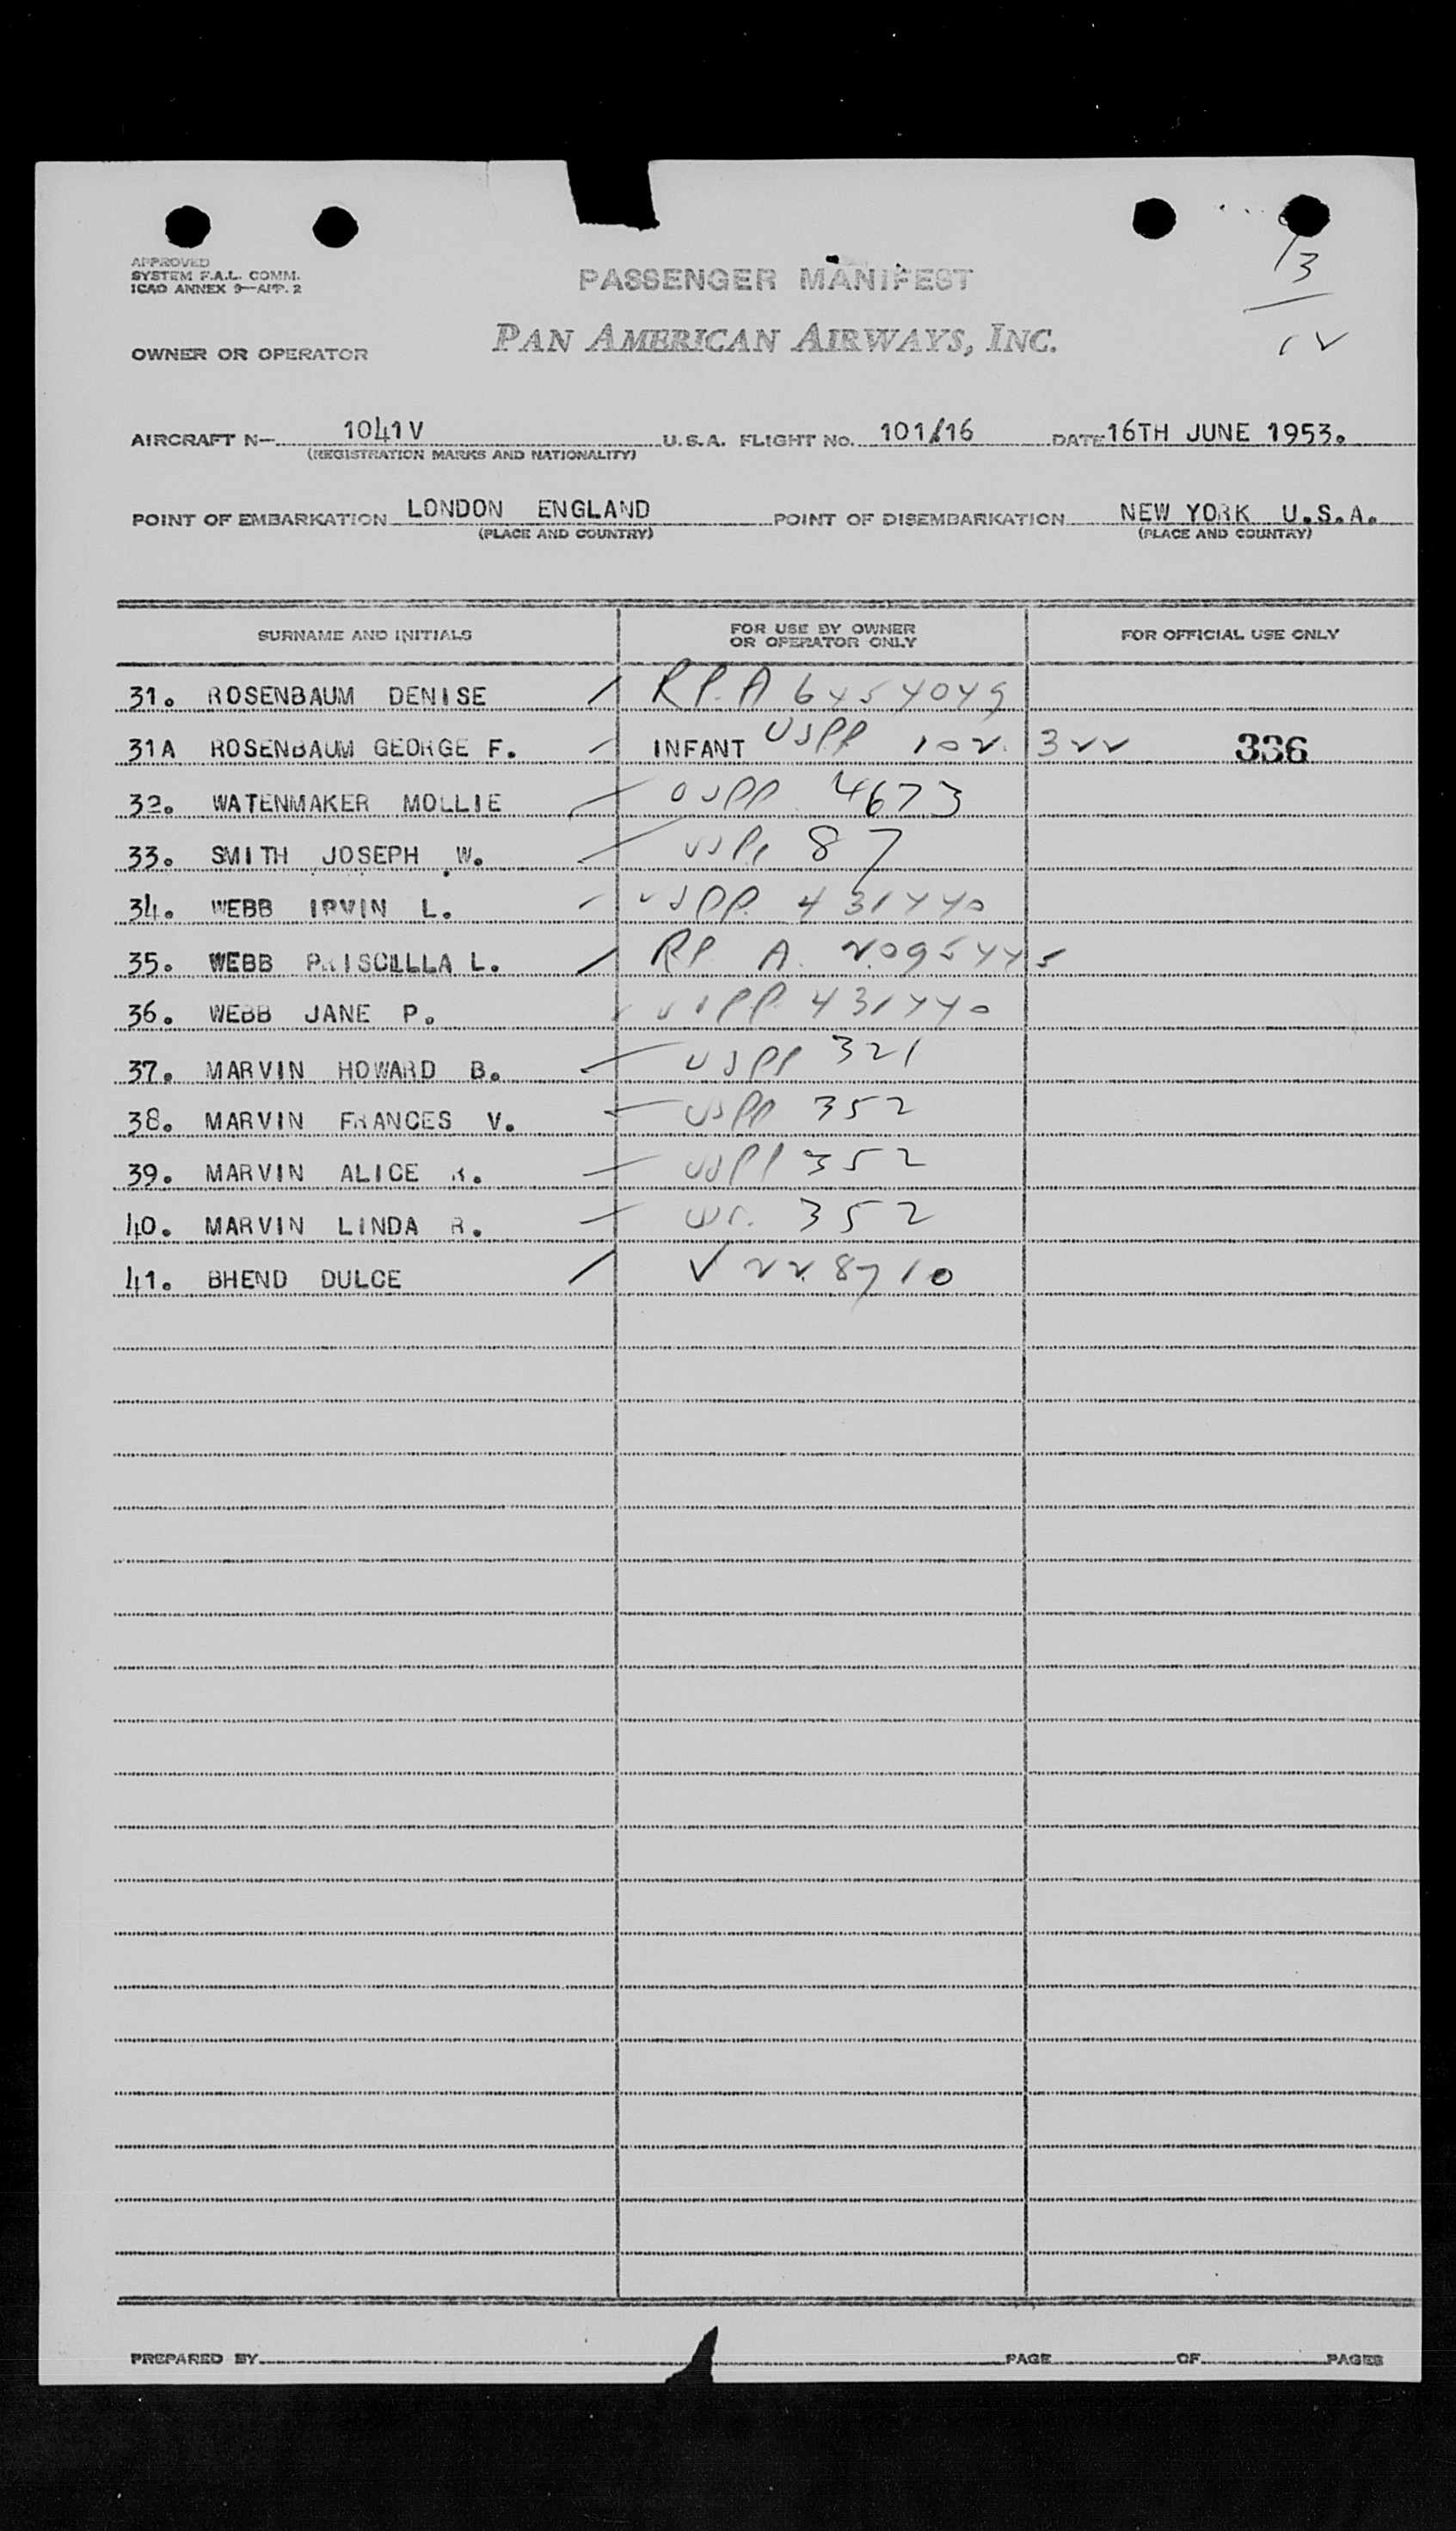 APPROVED
SYSTEM F.A.L. COMM.
ICAO ANNEX 9—APP. 2
PASSENGER MANIFEST
13
12
OWNER OR OPERATOR PAN AMERICAN AIRWAYS, INC.
AIRCRAFT N— 1041V U.S.A. FLIGHT No. 101/16 DATE 16TH JUNE 1953.
(REGISTRATION MARKS AND NATIONALITY)
POINT OF EMBARKATION LONDON ENGLAND POINT OF DISEMBARKATION NEW YORK U.S.A.
(PLACE AND COUNTRY) (PLACE AND COUNTRY)
SURNAME AND INITIALS FOR USE BY OWNER OR OPERATOR ONLY FOR OFFICIAL USE ONLY
31. ROSENBAUM DENISE / RP. A 6454049
31A ROSENBAUM GEORGE F. INFANT USPP 102 322 336
32. WATENMAKER MOLLIE USPP 4673
33. SMITH JOSEPH W. 87
34. WEBB IRVIN L. USPP 431440
35. WEBB PRISCILLLA L. / RP A. 2095445
36. WEBB JANE P. USPP 431440
37. MARVIN HOWARD B. USPP 321
38. MARVIN FRANCES V. USPP 352
39. MARVIN ALICE R. USPP 352
40. MARVIN LINDA R. 352
41. BHEND DULCE / V 228710
PREPARED BY PAGE OF PAGES